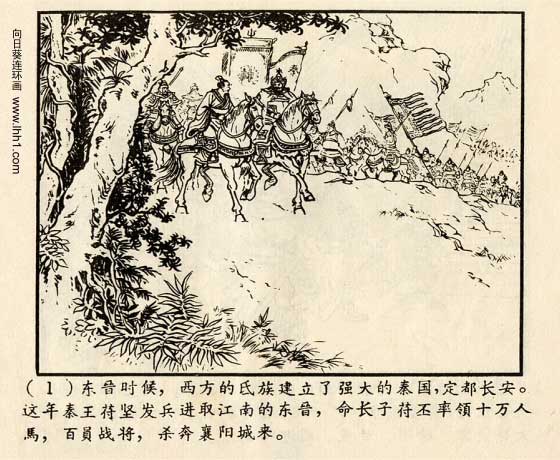 向日葵连环画 www.lhh1.com
秦
(1)东晋时候，西方的氐族建立了强大的秦国,定都长安。
这年秦王苻坚发兵进取江南的东晋，命长子苻丕率領十万人
馬，百員战将，杀奔襄阳城来。